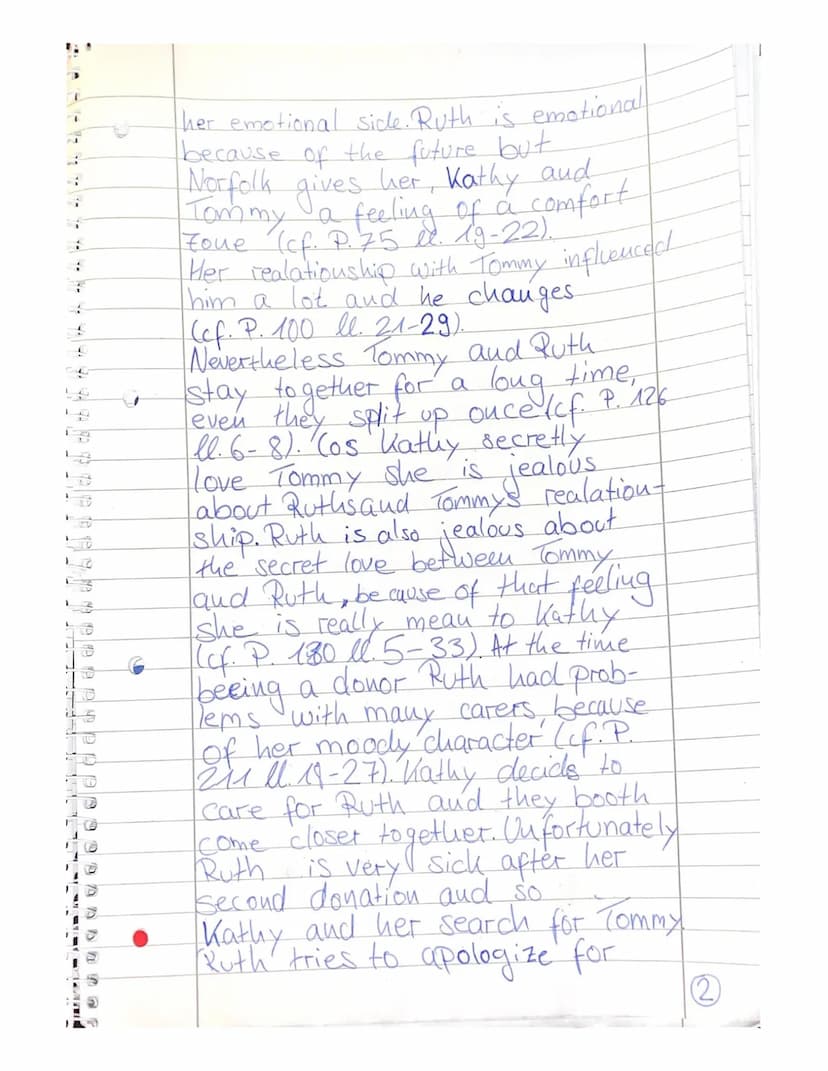 her emotional side. Ruth is emotional
because of the future but
Norfolk gives her, Kathy and
Tommy a feeling of a comfort
zone (cf. P. 75 ll. 19-22).
Her realationship with Tommy influenced
him a lot and he changes
(cf. P. 100 ll. 21-29).
Nevertheless Tommy and Ruth
stay together for a long time,
even they split up once (cf. P. 126
ll. 6-8). Cos Kathy secretly
love Tommy she is jealous
about Ruths and Tommys realation-
ship. Ruth is also jealous about
the secret love between Tommy
and Ruth, because of that feeling
she is really mean to Kathy
(cf. P. 180 ll. 5-33). At the time
beeing a donor Ruth had prob-
lems with many carers, because
of her moody character (cf. P.
211 ll. 19-27). Kathy decids to
care for Ruth and they booth
come closer together. Unfortunately
Ruth is very sick after her
second donation and so
Kathy and her search for Tommy.
Ruth tries to apologize for
2